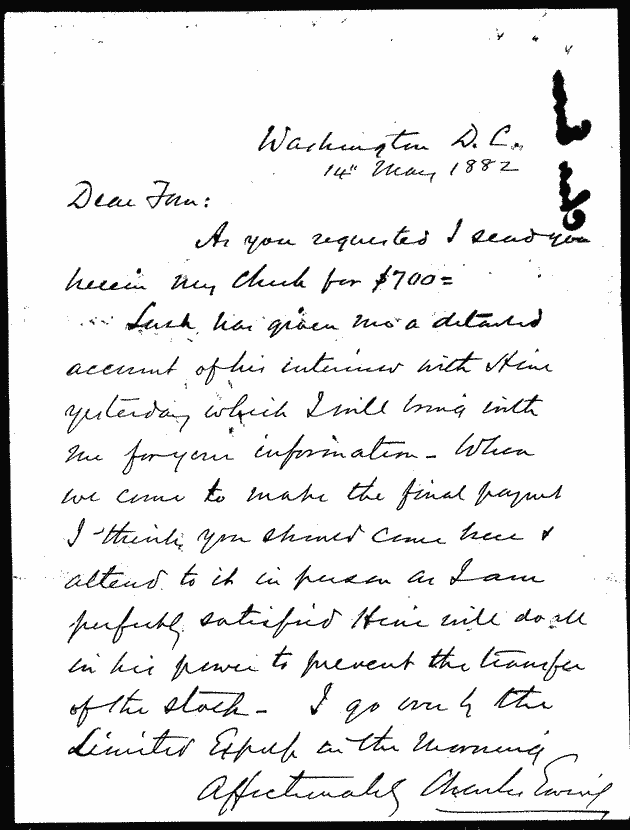 Washington D.C.
14" May 1882
Dear Tom:
As you requested I send you
herein my check for $700=
Lusk has given me a detailed
account of his interview with Hine
yesterday which I will bring with
me for your information - When
we come to make the final paymt
I think you should come here &
attend to it in person as I am
perfectly satisfied Hine will do all
in his power to prevent the transfer
of the stock - I go over by the
Limited Express in the Morning
Affectionately Charles Ewing